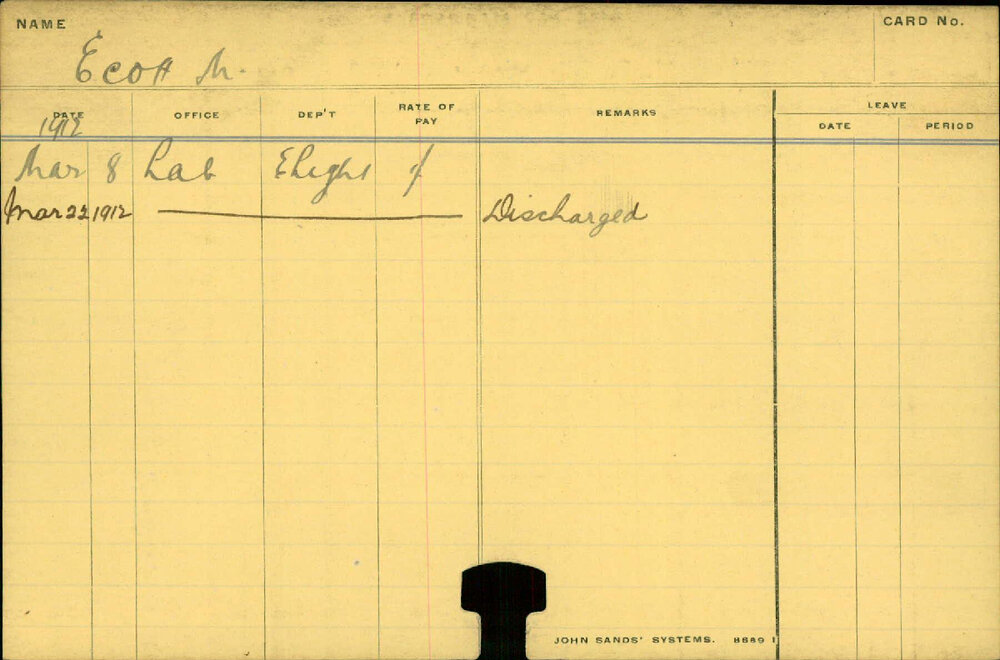 NAME
CARD No.
Ecott M.
DATE OFFICE DEP'T RATE OF PAY REMARKS LEAVE
DATE PERIOD
1912
Mar 8 Lab Elight
Mar 22 1912 Discharged
JOHN SANDS' SYSTEMS. 8689 1